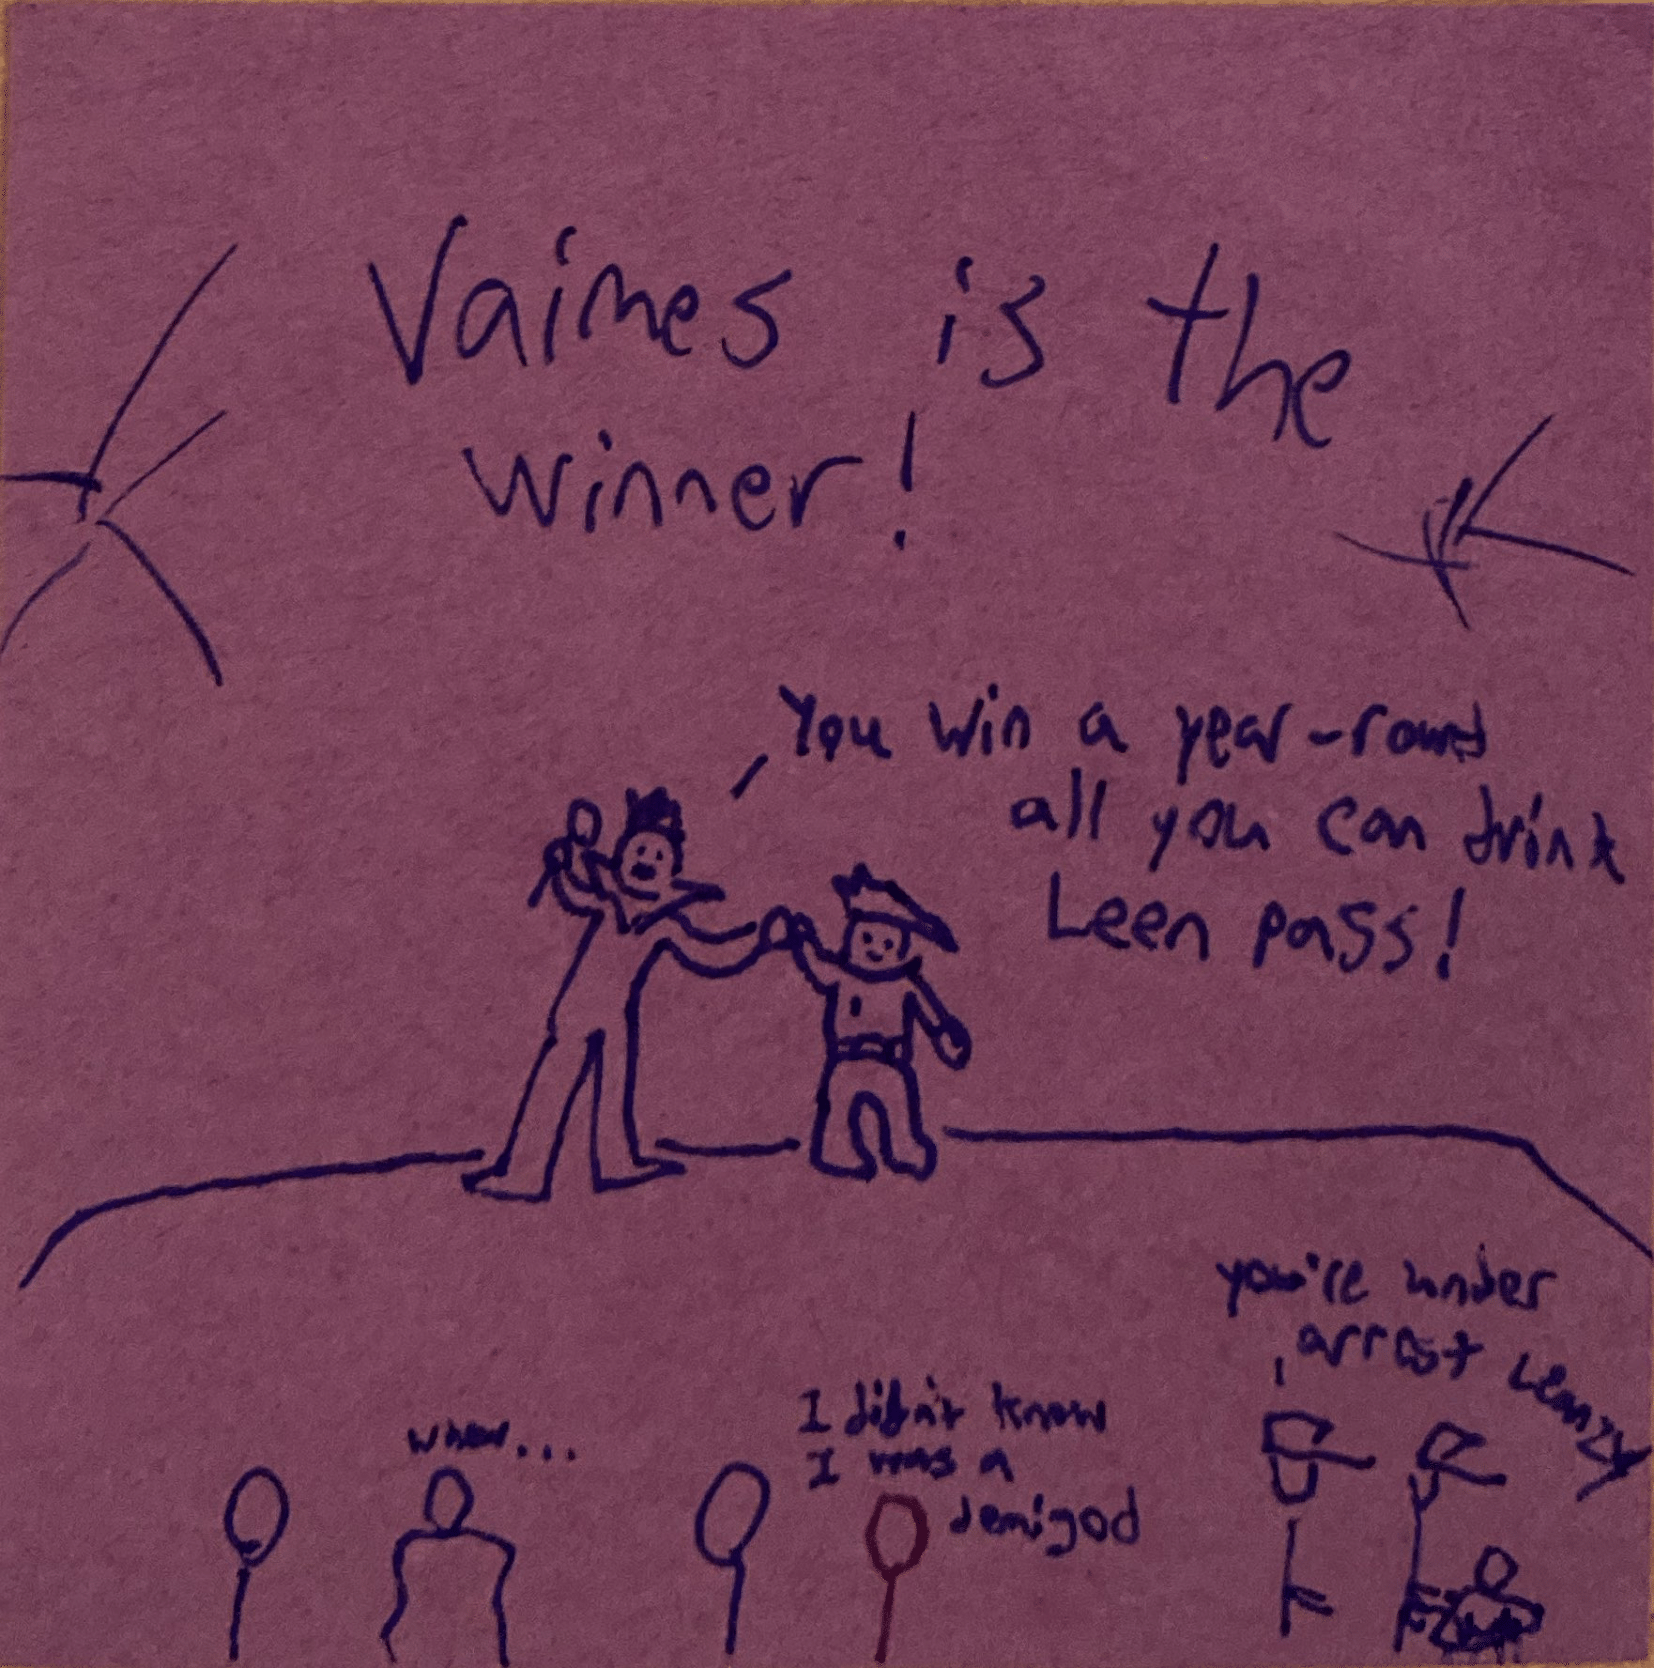 Vaimes is the
winner!
You win a year-round
all you can drink
Leen pass!
you're under
arrest Leanzy
whoa...
I didn't know
I was a
demigod